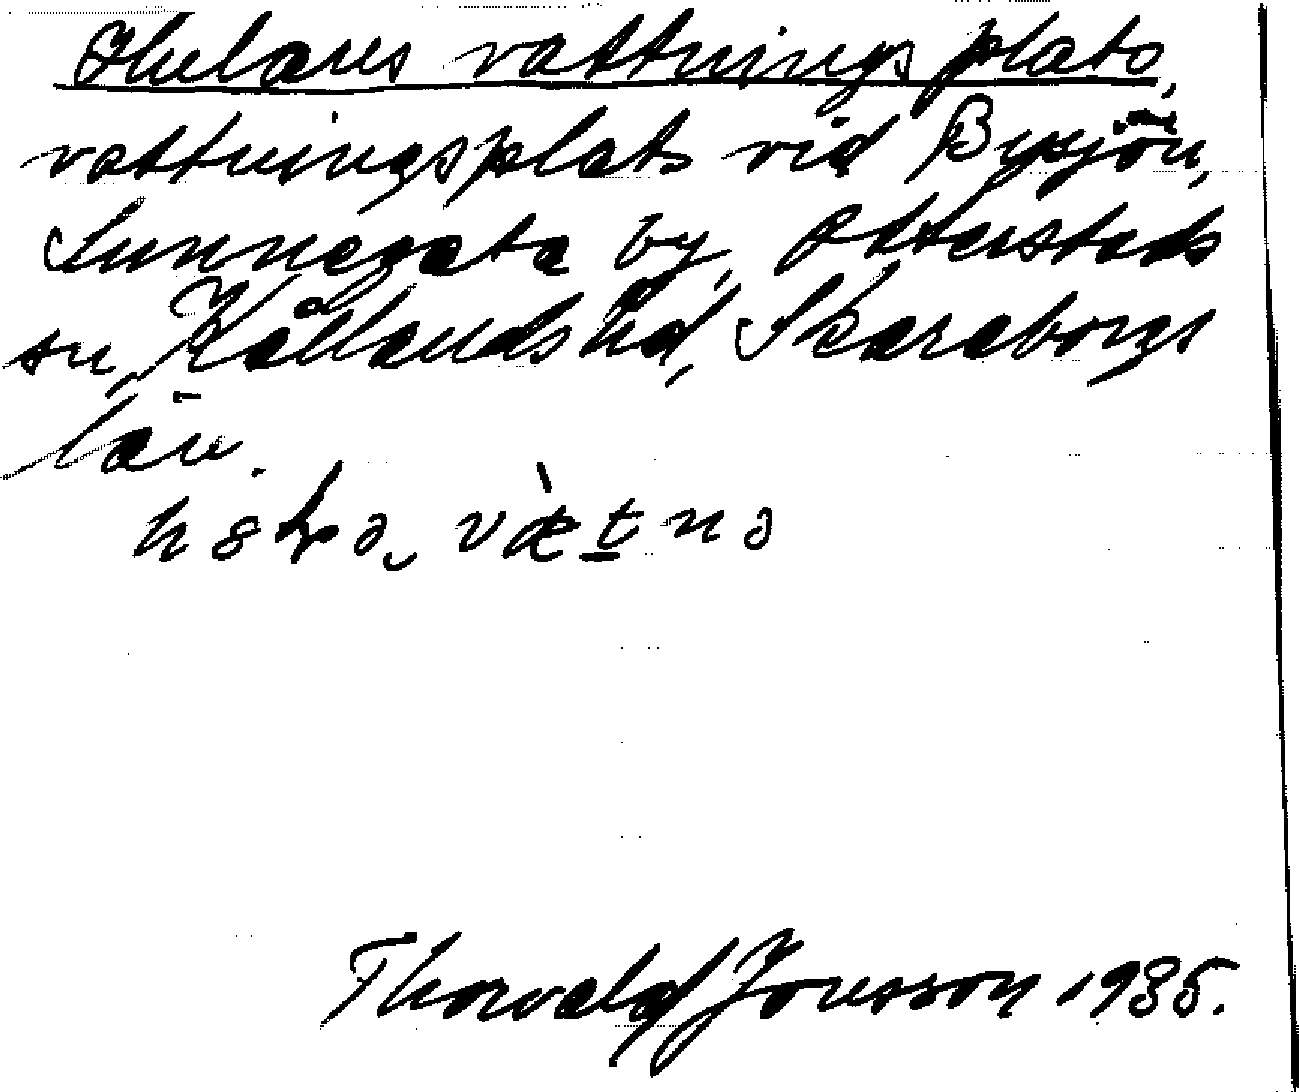 vattnings plats,
vattningsplats vid Bysjön,
Sunnegata by, Otterstads
sn, Kållands hd, Skaraborgs
län.
Thorvald Jonsson 1935.